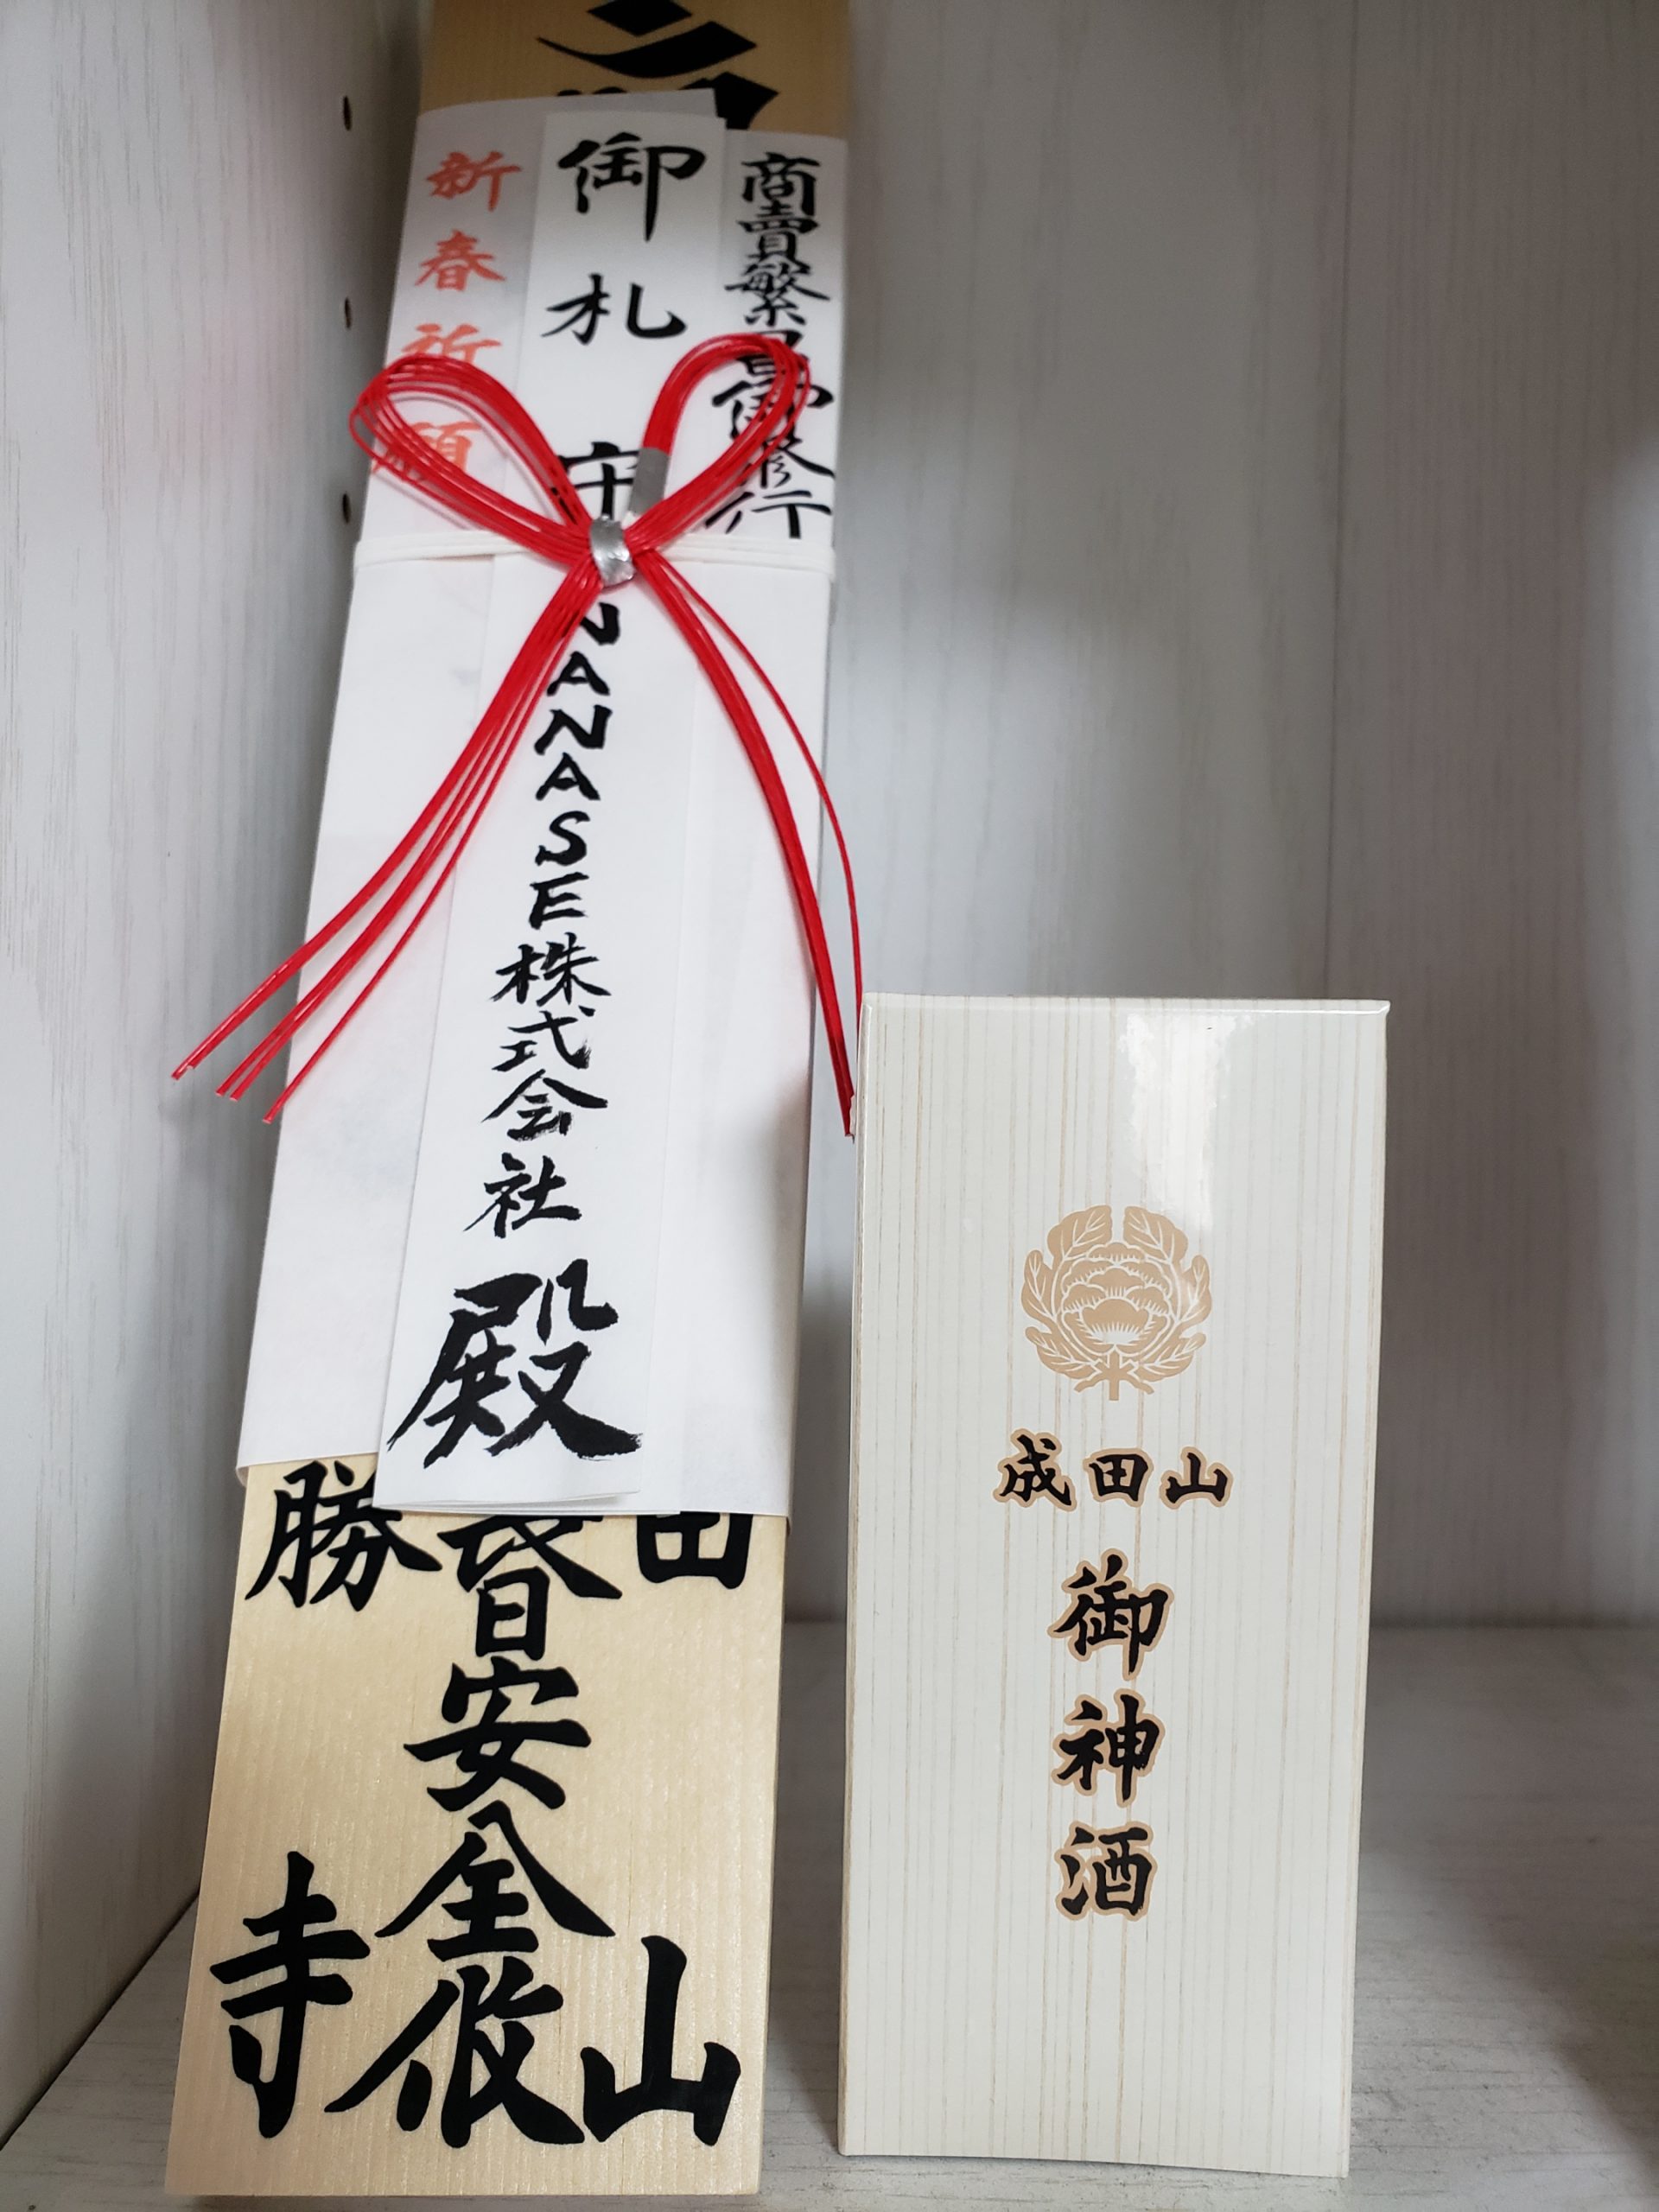 商賣繁昌御修行
御札守
NANASE株式会社殿
新春祈願
田山
安全攸
勝寺
成田山
御神酒